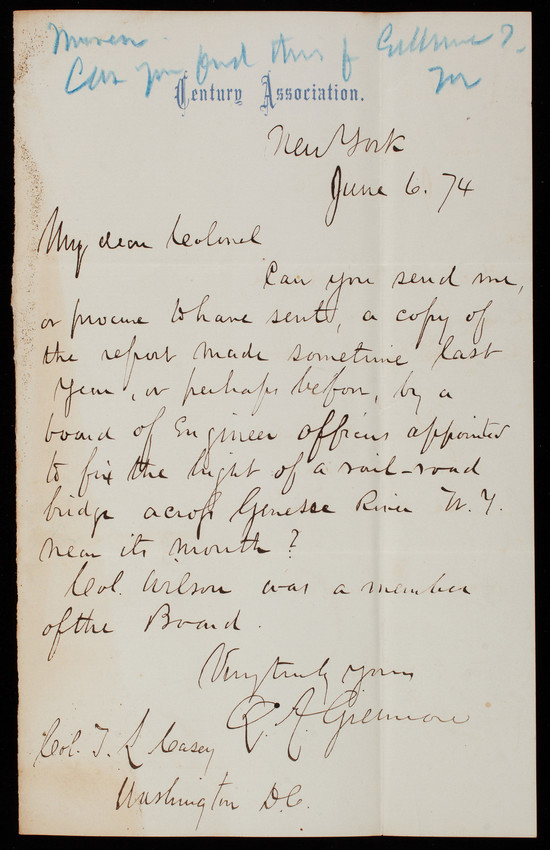 Can you find this for Gillmore?
Century Association.
New York
June 6. 74
My dear Colonel
Can you send me,
or procure to have sent, a copy of
the report made sometime last
year, or perhaps before, by a
board of Engineer officers appointed
to fix the hight of a rail-road
bridge across Genesee River N.Y.
near its mouth?
Col. Wilson was a member
of the Board.
Very truly yours
Q. A. Gillmore
Col. T. L. Casey
Washington D.C.